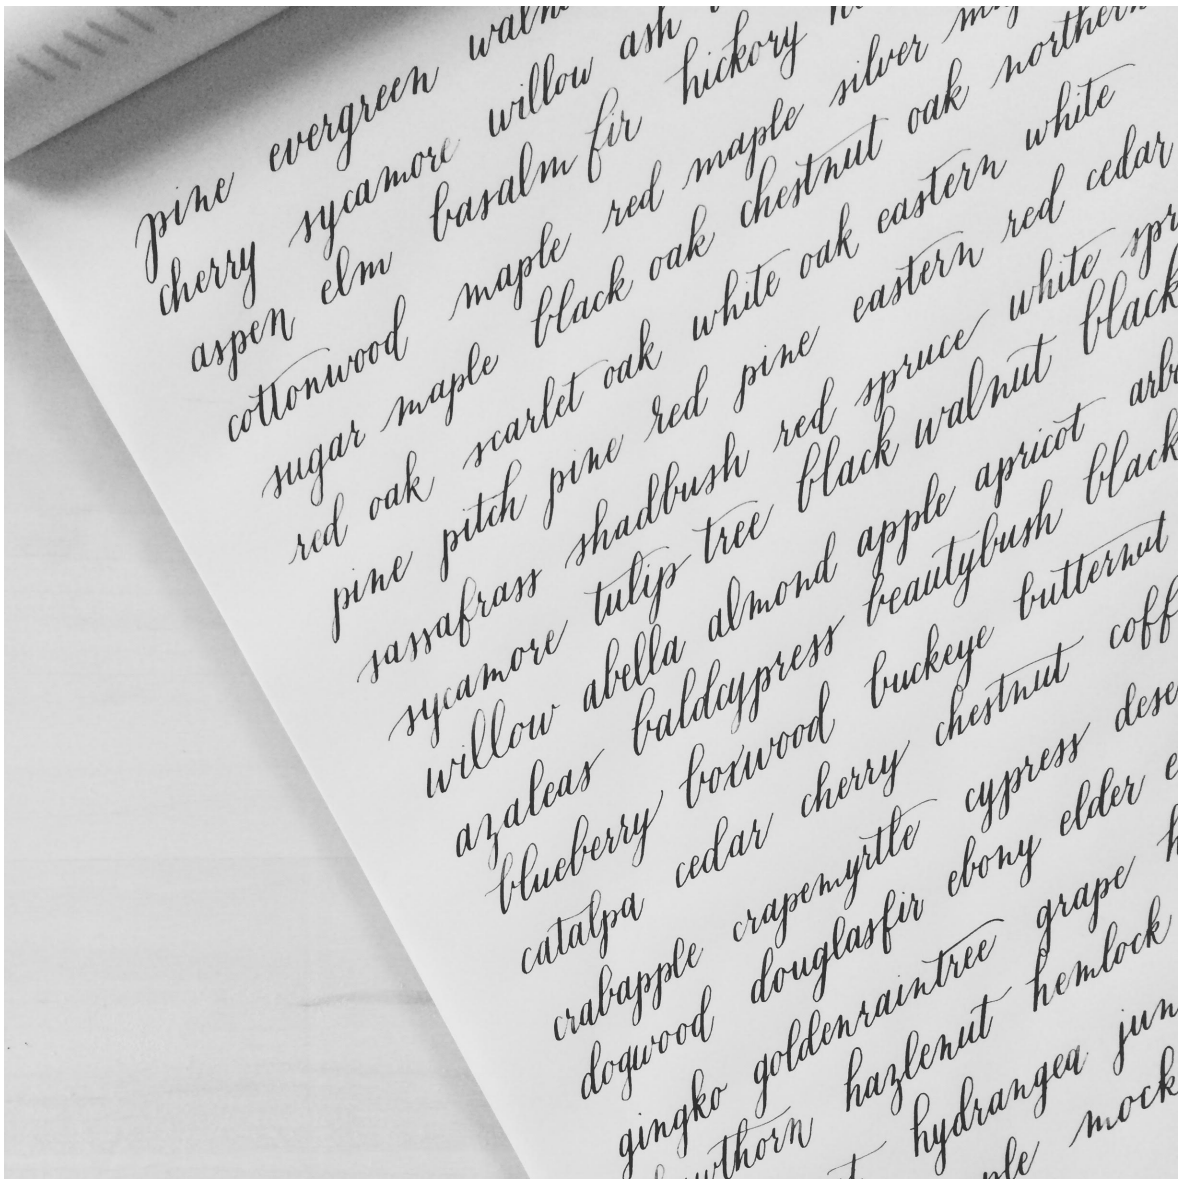 pine evergreen
cherry sycamore willow ash
aspen elm basalm fir hickory
cottonwood maple red maple silver
sugar maple black oak chestnut oak northern
red oak scarlet oak white oak eastern white
pine pitch pine red pine eastern red cedar
sassafrass shadbush red spruce white
sycamore tulip tree black walnut black
willow abella almond apple apricot
azaleas baldcypress beautybush black
blueberry boxwood buckeye butternut
catalpa cedar cherry chestnut
crabapple crapemyrtle cypress
dogwood douglasfir ebony elder
gingko goldenraintree grape
hazlenut hemlock
hydrangea